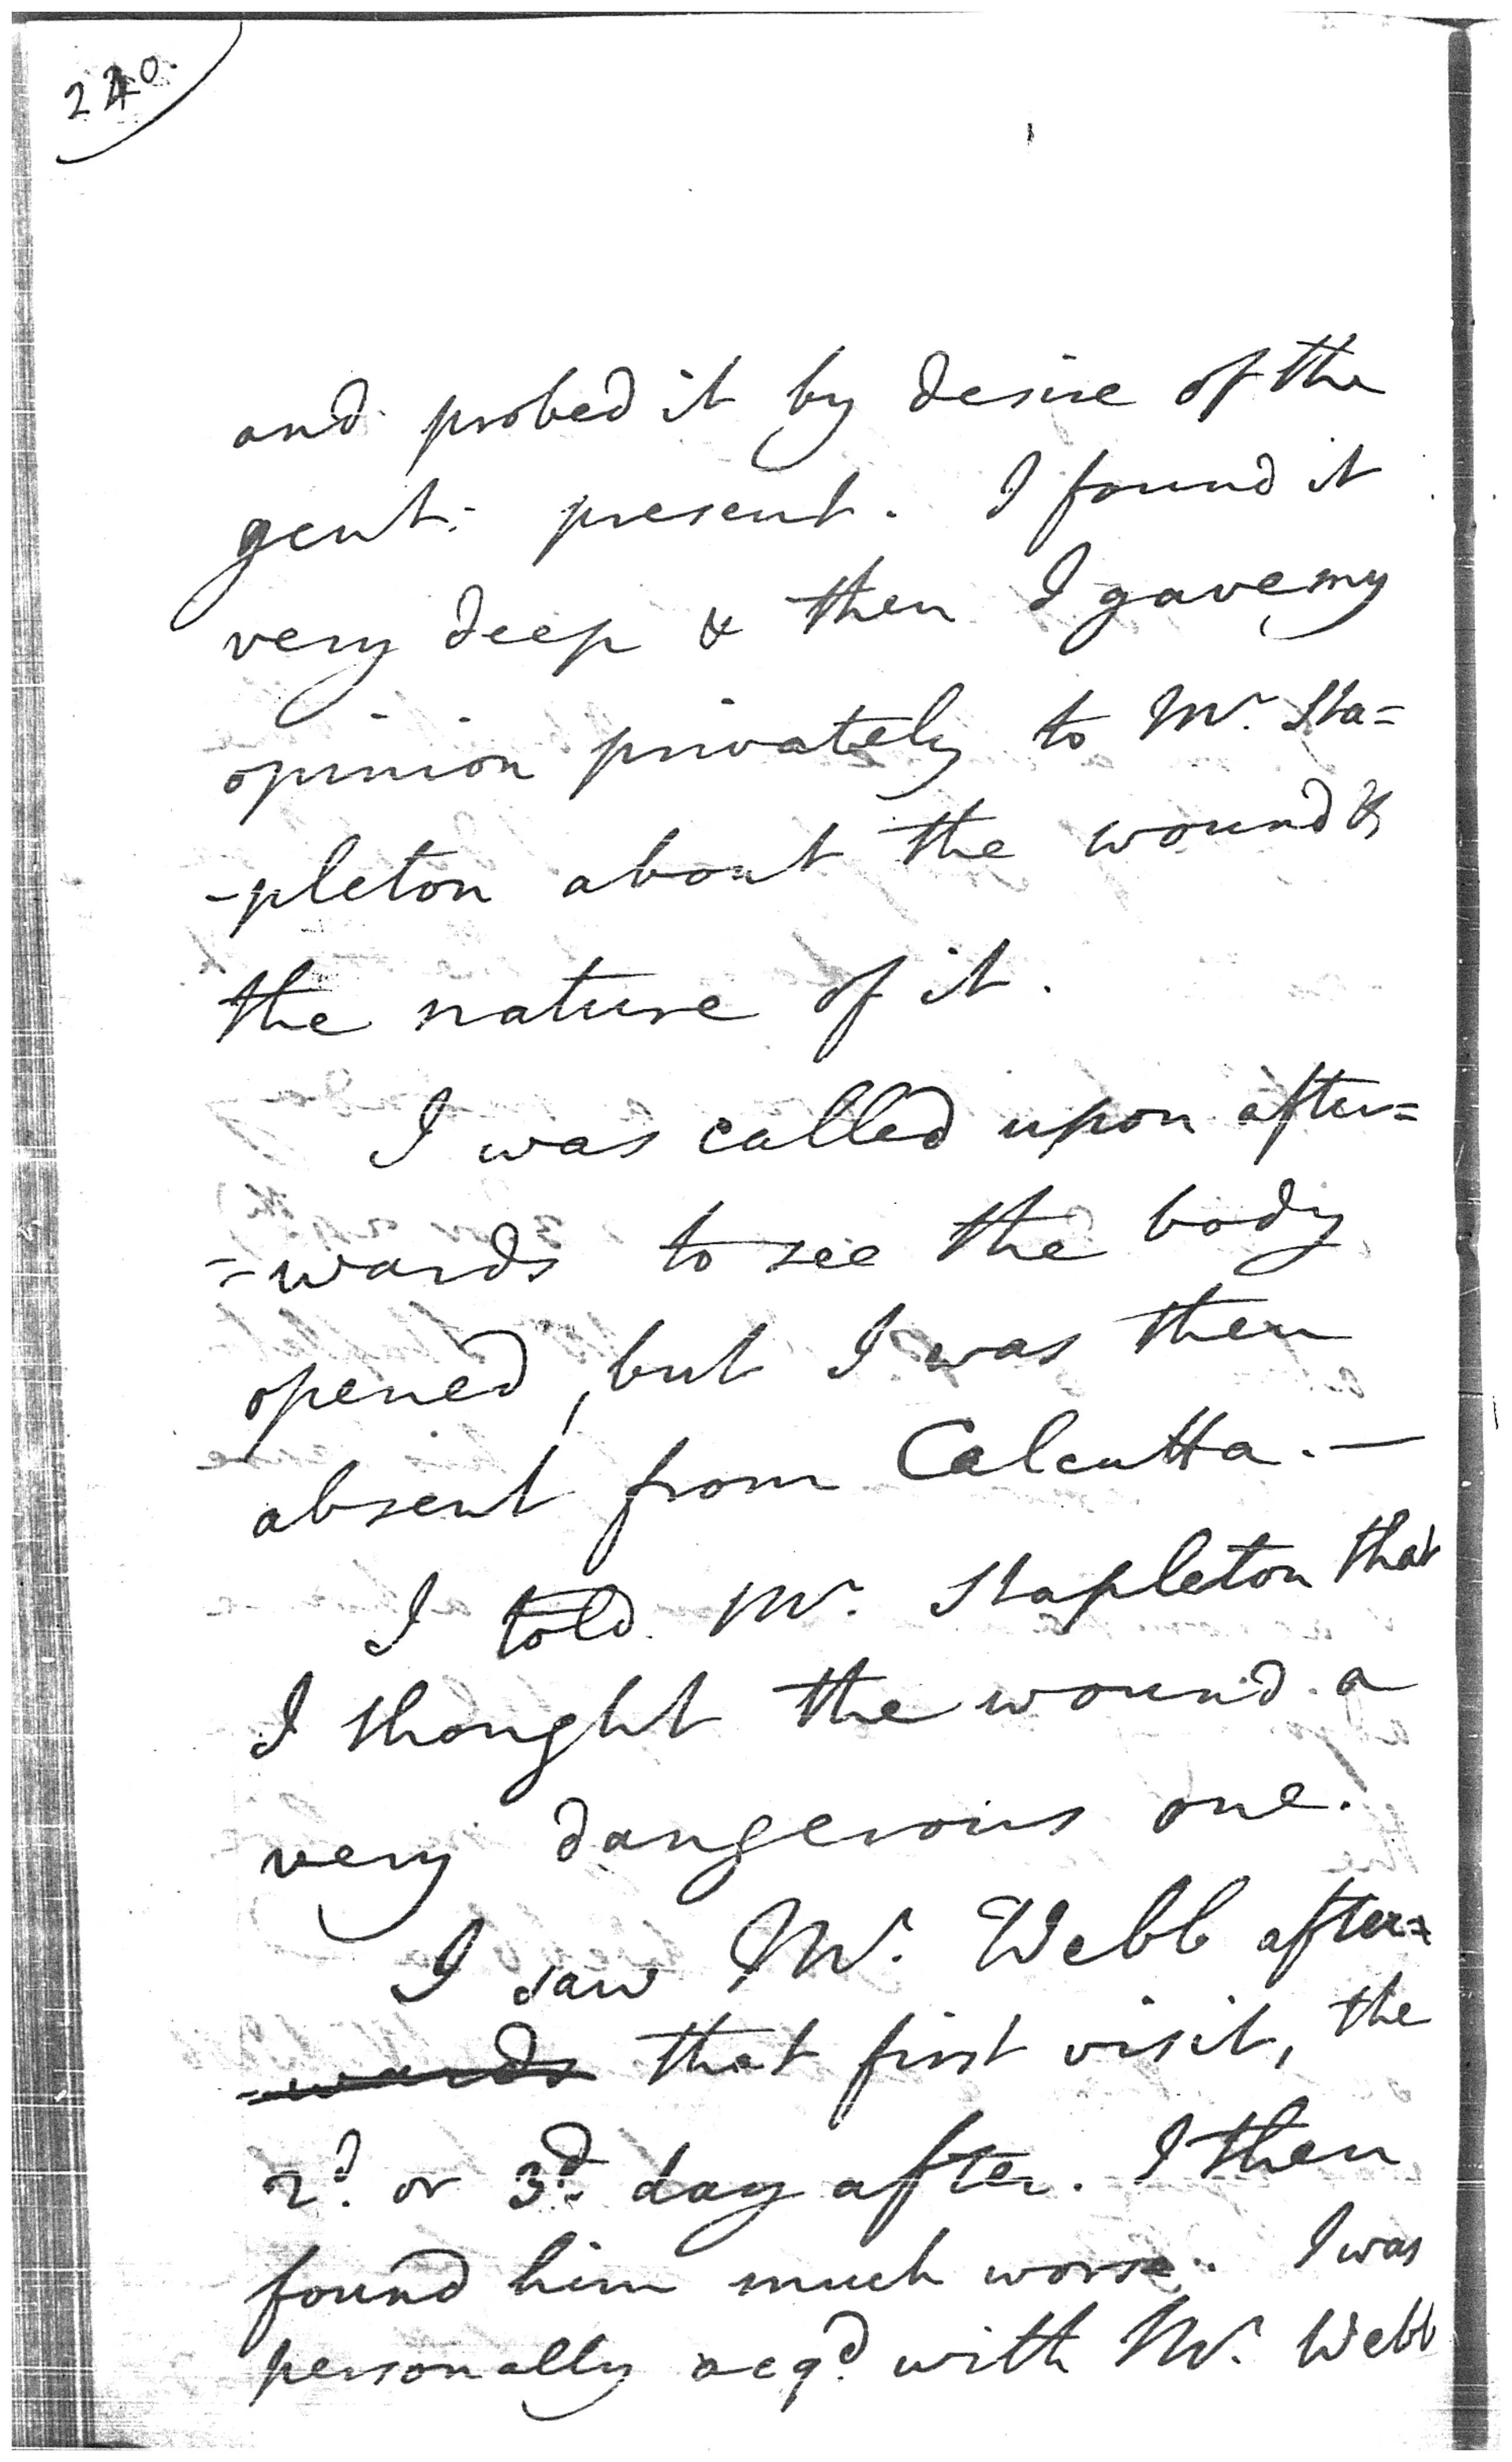 240.
and probed it by desire of the
gent: present. I found it
very deep & then I gave my
opinion privately to Mr. Sta=
-pleton about the wound &
the nature of it.
I was called upon after=
=wards to see the body
opened, but I was then
absent from Calcutta. —
I told Mr. Stapleton that
I thought the wound a
very dangerous one.
I saw Mr. Webb after=
-wards that first visit, the
2d. or 3d. day after. I then
found him much worse. I was
personally acqd. with Mr. Webb